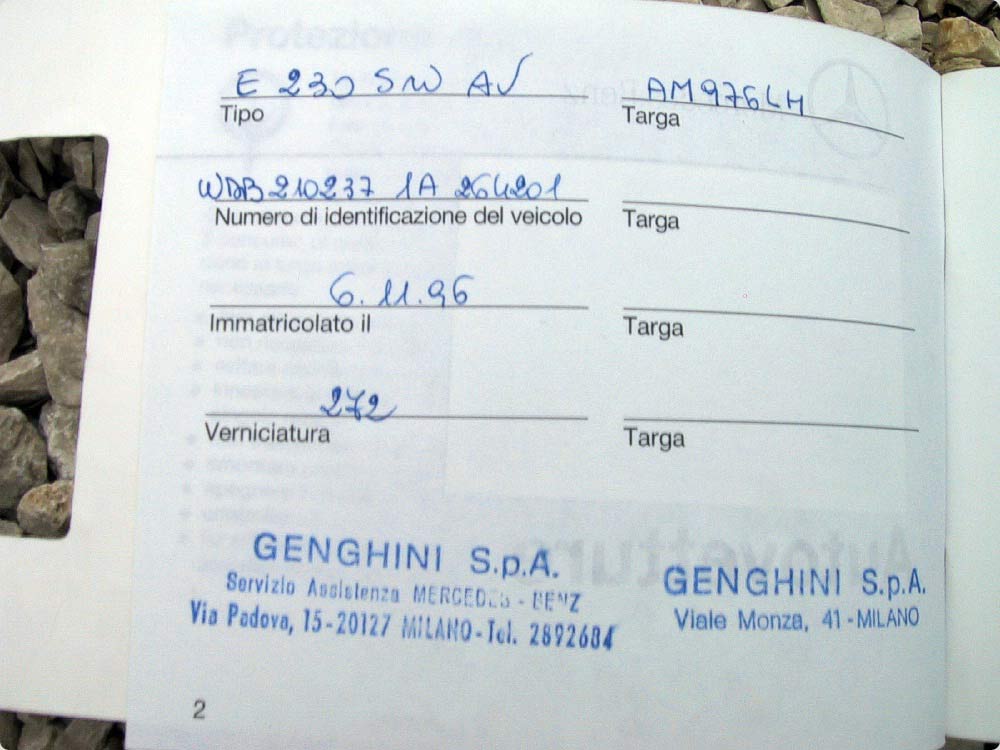 E 230 SW AV AM976LH
Tipo Targa
WDB 210237 1A 264201
Numero di identificazione del veicolo Targa
6.11.96
Immatricolato il Targa
272
Verniciatura Targa
GENGHINI S.p.A.
Servizio Assistenza MERCEDES - BENZ
Via Padova, 15-20127 MILANO-Tel. 2892684
GENGHINI S.p.A.
Viale Monza, 41 - MILANO
2